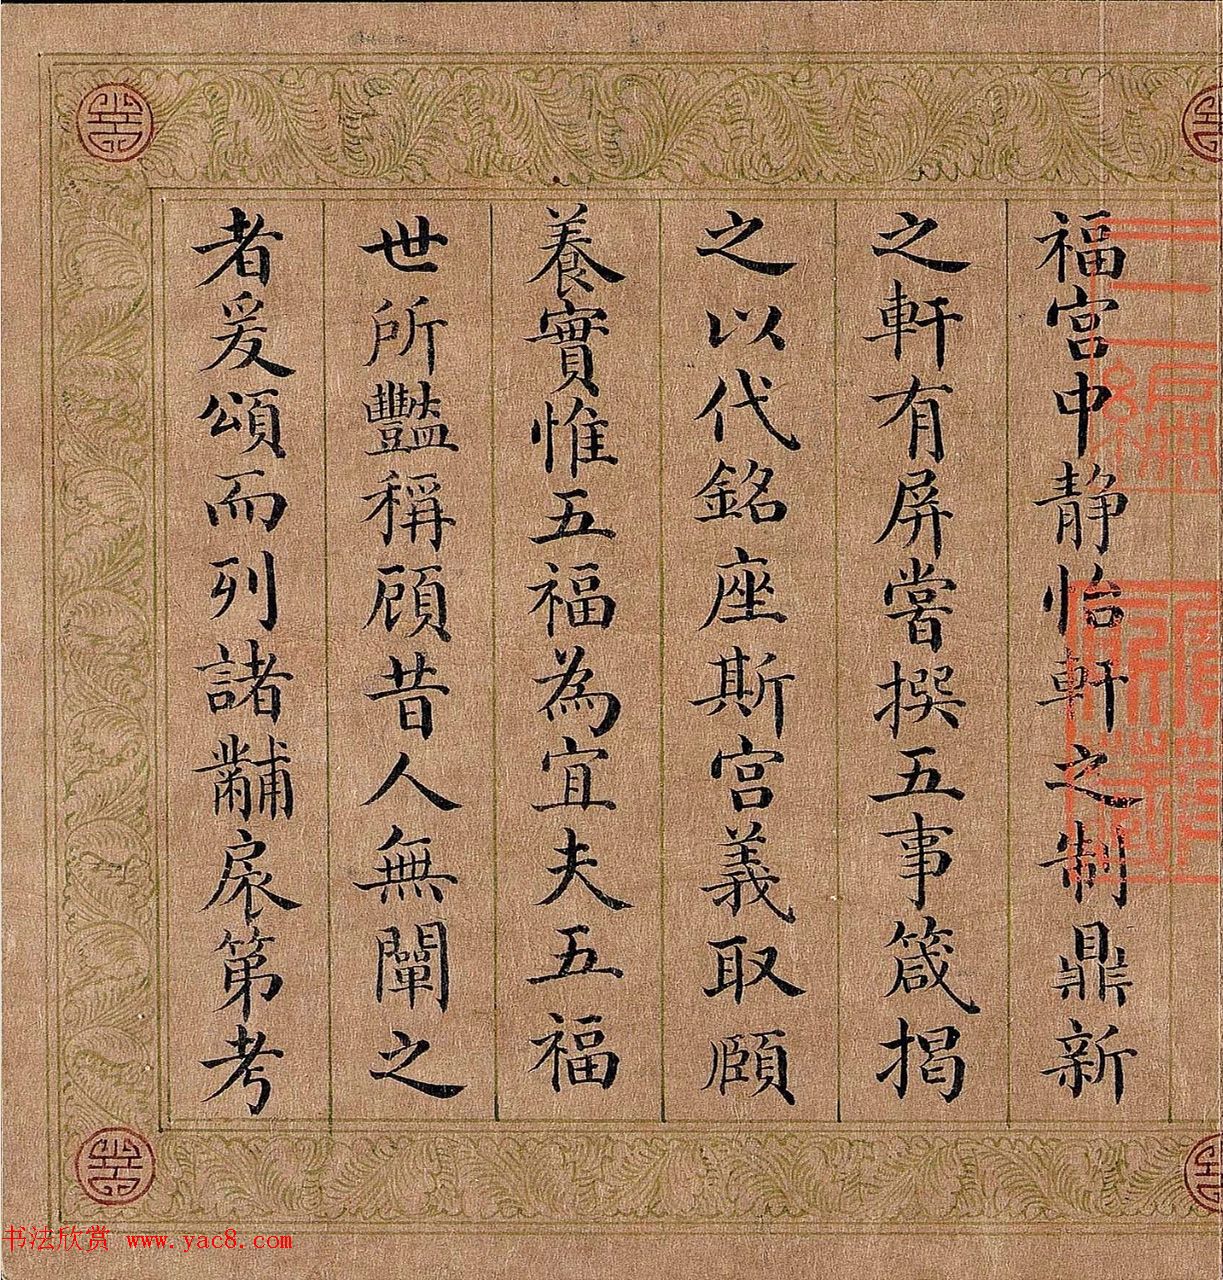 福宮中靜怡軒之制鼎新
之軒有屏嘗撰五事箴揭
之以代銘座斯宮義取頤
養實惟五福為宜夫五福
世所豔稱顧昔人無闡之
者爰頌而列諸黼扆第考
书法欣赏 www.yac8.com